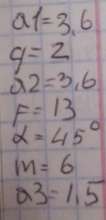 a1=3,6
g=2
a2=3,6
F=13
α=45°
m=6
a3=1,5